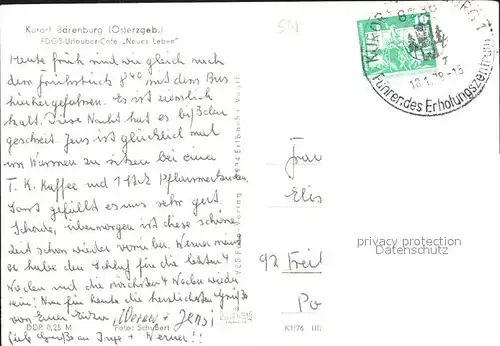 Kurort Bärenburg (Osterzgeb.)
FDGB-Urlauber-Café „Neues Leben"
Heute früh sind wir gleich nach
dem Frühstück 8⁴⁰ mit dem Bus
hierhergefahren. Es ist ziemlich
kalt. Diese Nacht hat es bißchen
geschneit. Jens ist glücklich mal
im Warmen zu sitzen bei eine
T. K. Kaffee und 1 Stck Pflaumenkuchen.
Sonst gefällt es uns sehr gut.
Schade, übermorgen ist diese schöne
Zeit schon wieder vorüber. Werner meint
er habe den Schlaf für die letzten 4
Wochen und die nächsten 4 Wochen wieder
rein! Nun für heute die herzlichsten Grüße
von Eurer Werner + Jens!
DDR 0,25 M
Foto: Schubert
Inge + Werner!!
VEB Foto-Verlag 9934 Erlbach i. Vogtl.
K1/76 III/
KURORT
18.1.79-15
Führer des Erholungszentrum
Frau
Elis
92 Frei
Po
privacy protection
Datenschutz